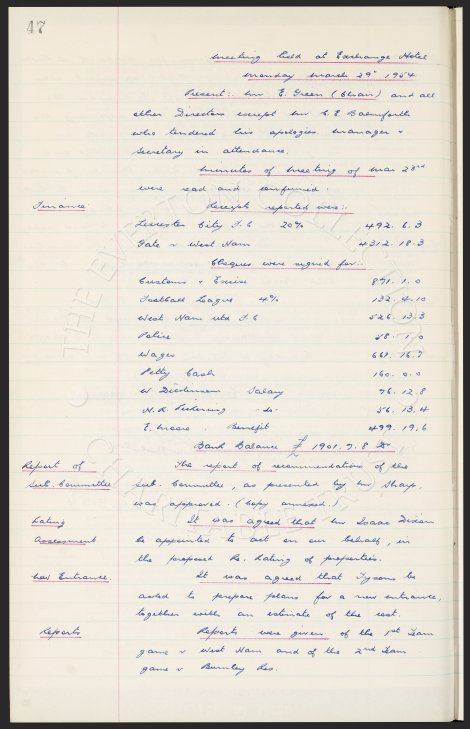 47
Meeting held at Exchange Hotel
Monday March 29th 1954
Present:- Mr E. Green (Chair) and all
other Directors except Mr C. E. Balmforth
who tendered his apologies. Manager &
Secretary in attendance.
Minutes of Meeting of Mar 23rd
were read and confirmed.
Finance. Receipts reported were:-
Leicester City F.C 20% 492. 6. 3
Gate v West Ham 4312. 18. 3
Cheques were signed for:-
Customs & Excise 871. 1. 0
Football League 4% 132. 4. 10
West Ham Utd F.C 526. 13. 3
Police 58. 1. 0
Wages 668. 16. 7
Petty Cash 160. 0. 0
W. Dickinson Salary 76. 12. 8
H. R. Pickering do. 56. 13. 4
E. Moore. Benefit 499. 19. 6
Bank Balance £ 1901. 7. 8 Dr
Report of The report of recommendations of the
Sub. Committee Sub. Committee, as presented by Mr Sharp,
was approved. (Copy annexed.)
Rating It was agreed that Mr Isaac Dixon
Assessment be appointed to act on our behalf, in
the proposed Re. Rating of properties.
New Entrance. It was agreed that Tysons be
asked to prepare plans for a new entrance,
together with an estimate of the cost.
Reports Reports were given of the 1st Team
game v West Ham and of the 2nd Team
game v Burnley Res.
THE EVERTON COLLECTION